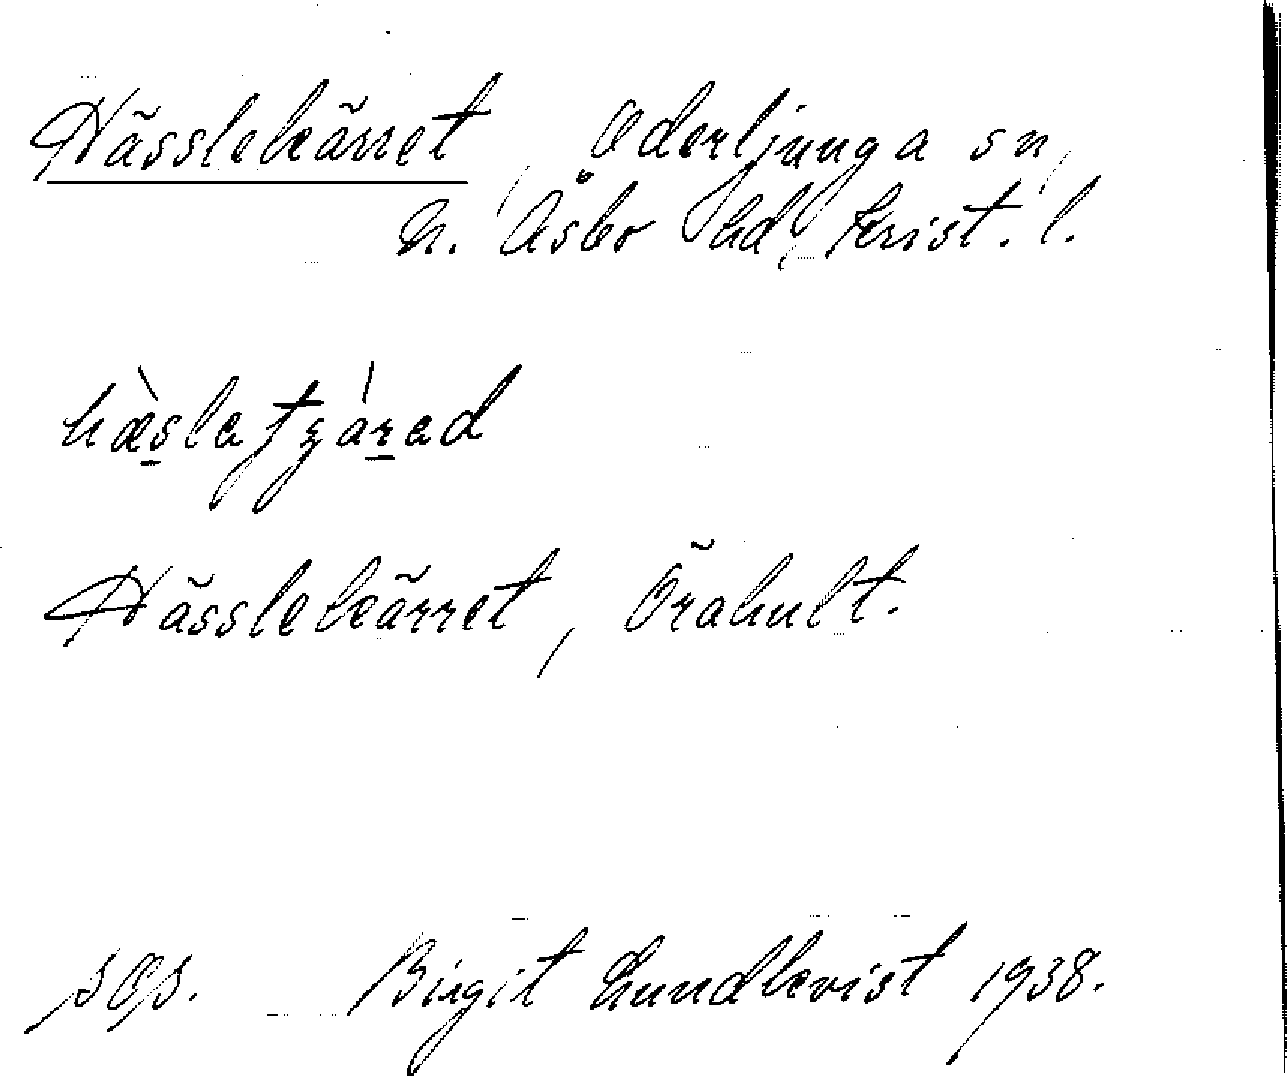 Hässlekärret, Oderljunga sn,
N. Åsbo hd, Krist. l.
hæ̀slatʒárad
Hässlekärret, Örahult.
SOS. Birgit Lundkvist 1938.